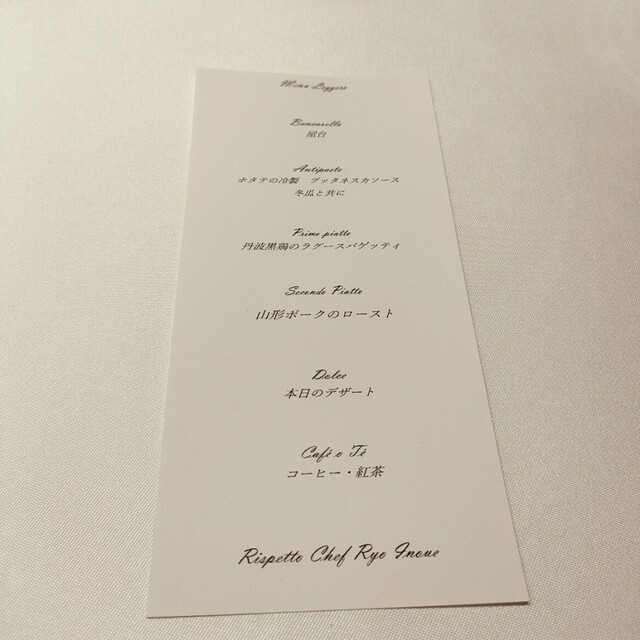 Menu Leggero
Bancarella
屋台
Antipasto
ホタテの冷製　プッタネスカソース
冬瓜と共に
Primo piatto
丹波黒鶏のラグースパゲッティ
Secondo Piatto
山形ポークのロースト
Dolce
本日のデザート
Café o Té
コーヒー・紅茶
Rispetto Chef Ryo Inoue